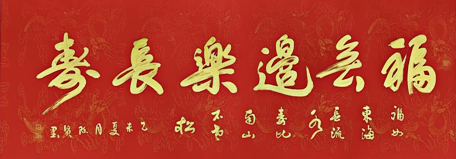 福無邊樂長壽
福如東海長流水壽比南山不老松
乙未夏月